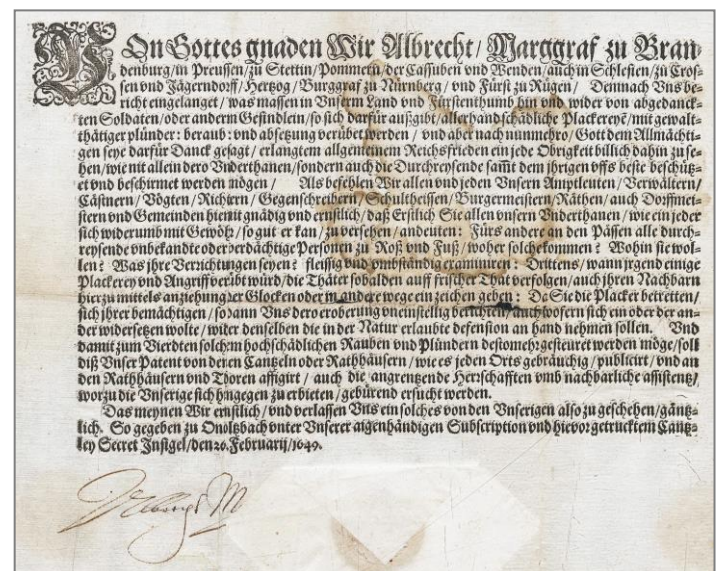 VOn Gottes gnaden Wir Albrecht / Marggraf zu Bran
denburg / in Preussen / zu Stettin / Pommern / der Cassuben vnd Wenden / auch in Schlesien / zu Cros-
sen vnd Jägerndorff / Hertzog / Burggraf zu Nürnberg / vnd Fürst zu Rügen / Demnach Vns be-
richt eingelanget / was massen in Vnserm Land vnd Fürstenthumb hin vnd wider von abgedanck-
ten Soldaten / oder anderm Gesindlein / so sich darfür außgibt / allerhand schädliche Plackereyē / mit gewalt-
thätiger plünder : beraub : vnd absetzung verübet werden / vnd aber nach nunmehro / Gott dem Allmächti-
gen seye darfür Danck gesagt / erlangtem allgemeinem Reichsfrieden ein jede Obrigkeit billich dahin zu se-
hen / wie nit allein dero Vnderthanen / sondern auch die Durchreysende sampt dem jhrigen vffs beste beschütz-
et vnd beschirmet werden mögen / Als befehlen Wir allen vnd jeden Vnsern Amptleuten / Verwältern /
Cästnern / Vögten / Richtern / Gegenschreibern / Schultheissen / Burgermeistern / Räthen / auch Dorffmei-
stern vnd Gemeinden hiemit gnädig vnd ernstlich / daß Erstlich Sie allen vnsern Vnderthanen / wie ein jeder
sich widerumb mit Gewöhr / so gut er kan / zu versehen / andeuten : Fürs andere an den Pässen alle durch-
reysende vnbekandte oder verdächtige Personen zu Roß vnd Fuß / woher solche kommen ? Wohin sie wol-
len ? Was jhre Verrichtungen seyen ? fleissig vnd vmbständig examiniren : Drittens / wann jrgend einige
Plackerey vnd Angriff verübt würd / die Thäter sobalden auff frischer That verfolgen / auch jhren Nachbarn
hierzu mittels anziehung der Glocken oder in andere wege ein zeichen geben : Da Sie die Placker betretten /
sich jhrer bemächtigen / sodann Vns dero eroberung vneinstellig berichten / auch wofern sich ein oder der an-
der widersetzen wolte / wider denselben die in der Natur erlaubte defension an hand nehmen sollen. Vnd
damit zum Vierdten solchem hochschädlichen Rauben vnd Plündern desto mehr gesteuret werden möge / soll
diß Vnser Patent von denen Cantzeln oder Rathhäusern / wie es jeden Orts gebräuchig / publicirt / vnd an
den Rathhäusern vnd Thoren affigirt / auch die angrentzende Herrschafften vmb nachbarliche assistentz /
worzu die Vnserige sich hingegen zu erbieten / gebürend ersucht werden.
Das meynen Wir ernstlich / vnd verlassen Vns ein solches von den Vnserigen also zu geschehen / gäntz-
lich. So gegeben zu Onoltzbach vnter Vnserer aigenhändigen Subscription vnd hievor getrucktem Cantz-
ley Secret Insigel / den 26. Februarij / 1649.
Albrecht M